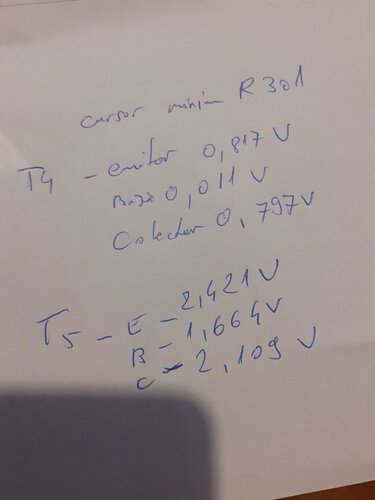 cursor minim R301
T4 - emitor 0,817 V
Baza 0,011 V
Colector 0,797V
T5 - E - 2,421 V
B - 1,664V
C - 2,109 V